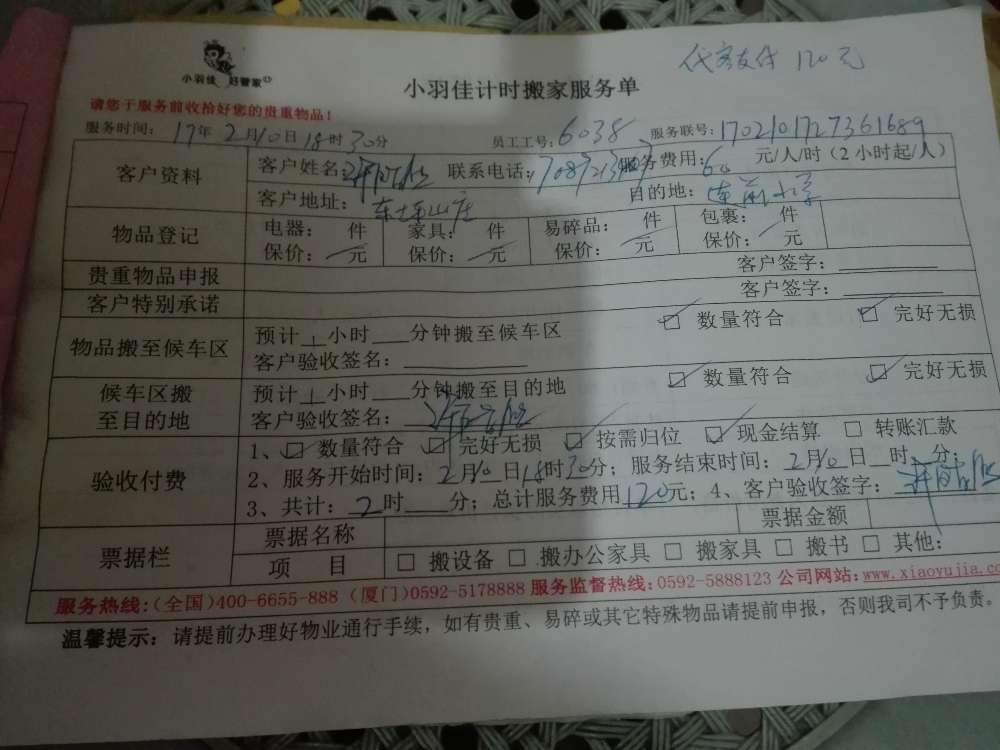 代客支付 120元
小羽佳 好管家
小羽佳计时搬家服务单
请您于服务前收拾好您的贵重物品！
服务时间： 17年 2月10日 18时 30分 员工工号：6038 服务联号：1702101727361689
客户资料 客户姓名： 联系电话： 服务费用：60 元/人/时（2小时起/人）
客户地址：东坪山庄 目的地：
物品登记 电器： 件 家具： 件 易碎品： 件 包裹： 件
保价： 元 保价： 元 保价： 元 保价： 元
贵重物品申报 客户签字：
客户特别承诺 客户签字：
物品搬至候车区 预计 1 小时 分钟搬至候车区 ☑ 数量符合 ☑ 完好无损
客户验收签名：
候车区搬至目的地 预计 1 小时 分钟搬至目的地 ☑ 数量符合 ☑ 完好无损
客户验收签名：
验收付费 1、☑ 数量符合 ☑ 完好无损 ☑ 按需归位 ☑ 现金结算 □ 转账汇款
2、服务开始时间：2月10日18时30分；服务结束时间：2月10日 时 分；
3、共计：2时 分；总计服务费用120元；4、客户验收签字：
票据栏 票据名称 票据金额
项 目 □ 搬设备 □ 搬办公家具 □ 搬家具 □ 搬书 □ 其他：
服务热线：(全国)400-6655-888 (厦门)0592-5178888 服务监督热线：0592-5888123 公司网站：www.xiaoyujia.co
温馨提示：请提前办理好物业通行手续，如有贵重、易碎或其它特殊物品请提前申报，否则我司不予负责。